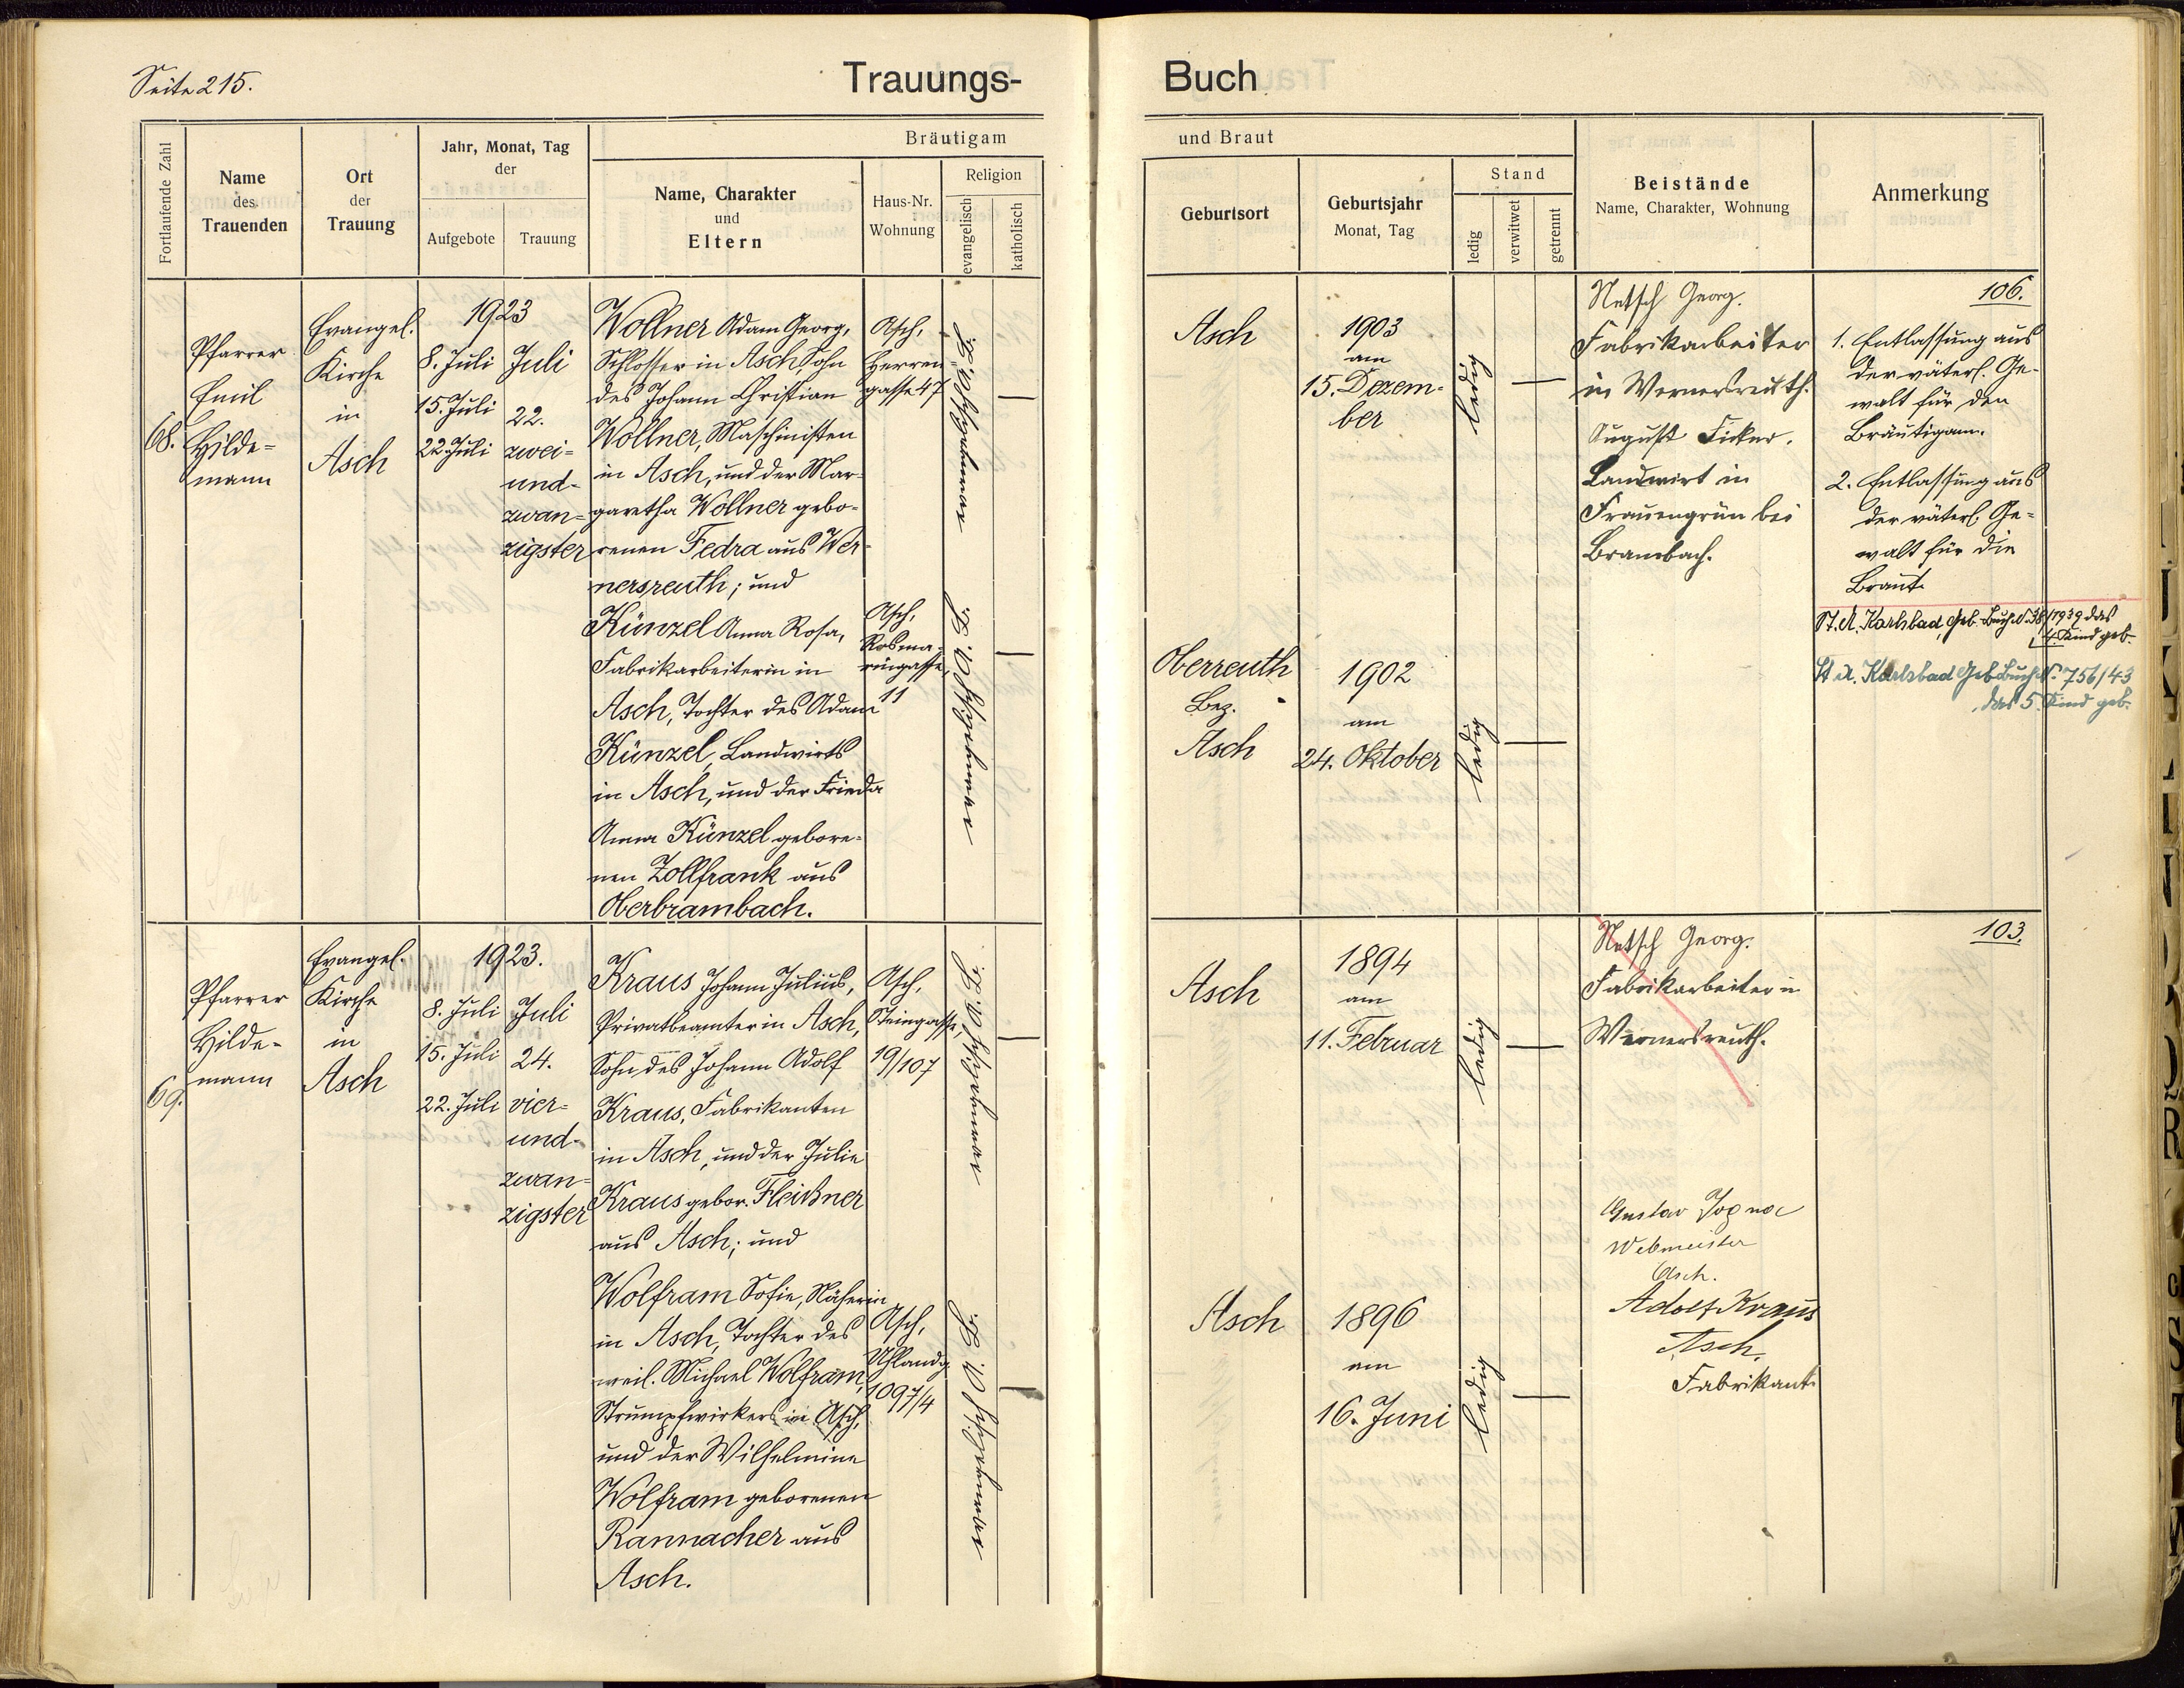 Seite 215.
Trauungs-
Buch
Fortlaufende Zahl
Name
des
Trauenden
Ort
der
Trauung
Jahr, Monat, Tag
der
Aufgebote
Trauung
Bräutigam
Name, Charakter
und
Eltern
Haus-Nr.
Wohnung
Religion
evangelisch
katholisch
und Braut
Geburtsort
Geburtsjahr
Monat, Tag
Stand
ledig
verwitwet
getrennt
Beistände
Name, Charakter, Wohnung
Anmerkung
68.
Pfarrer
Emil
Hilde=
mann
Evangel.
Kirche
in
Asch
1923
8. Juli
15. Juli
22. Juli
Juli
22.
zwei=
und=
zwan=
zigster
Wollner Adam Georg,
Schlosser in Asch, Sohn
des Johann Christian
Wollner, Maschinisten
in Asch, und der Mar-
garetha Wollner gebo-
renen Fedra aus Wer-
nersreuth; und
Künzel Anna Rosa,
Fabrikarbeiterin in
Asch, Tochter des Adam
Künzel, Landwirts
in Asch, und der Frieda
Anna Künzel gebore-
nen Zollfrank aus
Oberbrambach.
Asch,
Herren
gasse 47
Asch,
Rosma-
ringasse,
11
Asch
1903
am
15. Dezem-
ber
ledig
Oberreuth
Bez.
Asch
1902
am
24. Oktober
ledig
Netsch Georg.
Fabrikarbeiter
in Wernersreuth.
August Ficker.
Landwirt in
Frauengrün bei
Brambach.
106.
1. Entlassung aus
der väterl. Ge-
walt für den
Bräutigam.
2. Entlassung aus
der väterl. Ge-
walt für die
Braut.
St. A. Karlsbad, Geb. Buch N. 38/1939 das
4. Kind geb.
St. A. Karlsbad Geb. Buch N. 756/43
das 5. Kind geb.
69.
Pfarrer
Hilde-
mann
Evangel.
Kirche
in
Asch
1923.
8. Juli
15. Juli
22. Juli
Juli
24.
vier=
und=
zwan=
zigster
Kraus Johann Julius,
Privatbeamter in Asch,
Sohn des Johann Adolf
Kraus, Fabrikanten
in Asch, und der Julie
Kraus gebor. Fleißner
aus Asch; und
Wolfram Sofie, Näherin
in Asch, Tochter des
weil. Michael Wolfram,
Strumpfwirkers in Asch,
und der Wilhelmine
Wolfram geborenen
Rannacher aus
Asch.
Asch,
Steingasse,
19/107
Asch,
Uhlandg.
1097/4
Asch
1894
am
11. Februar
ledig
Asch
1896
am
16. Juni
ledig
Netsch Georg.
Fabrikarbeiter in
Wernersreuth.
Gustav
Webmeister
Asch.
Adolf Kraus
Asch,
Fabrikant.
103.